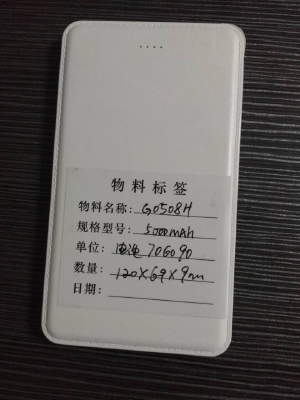 物料标签
物料名称: G0508H
规格型号: 5000MAH
单位: 电池 706090
数量: 120X69X9mm
日期: